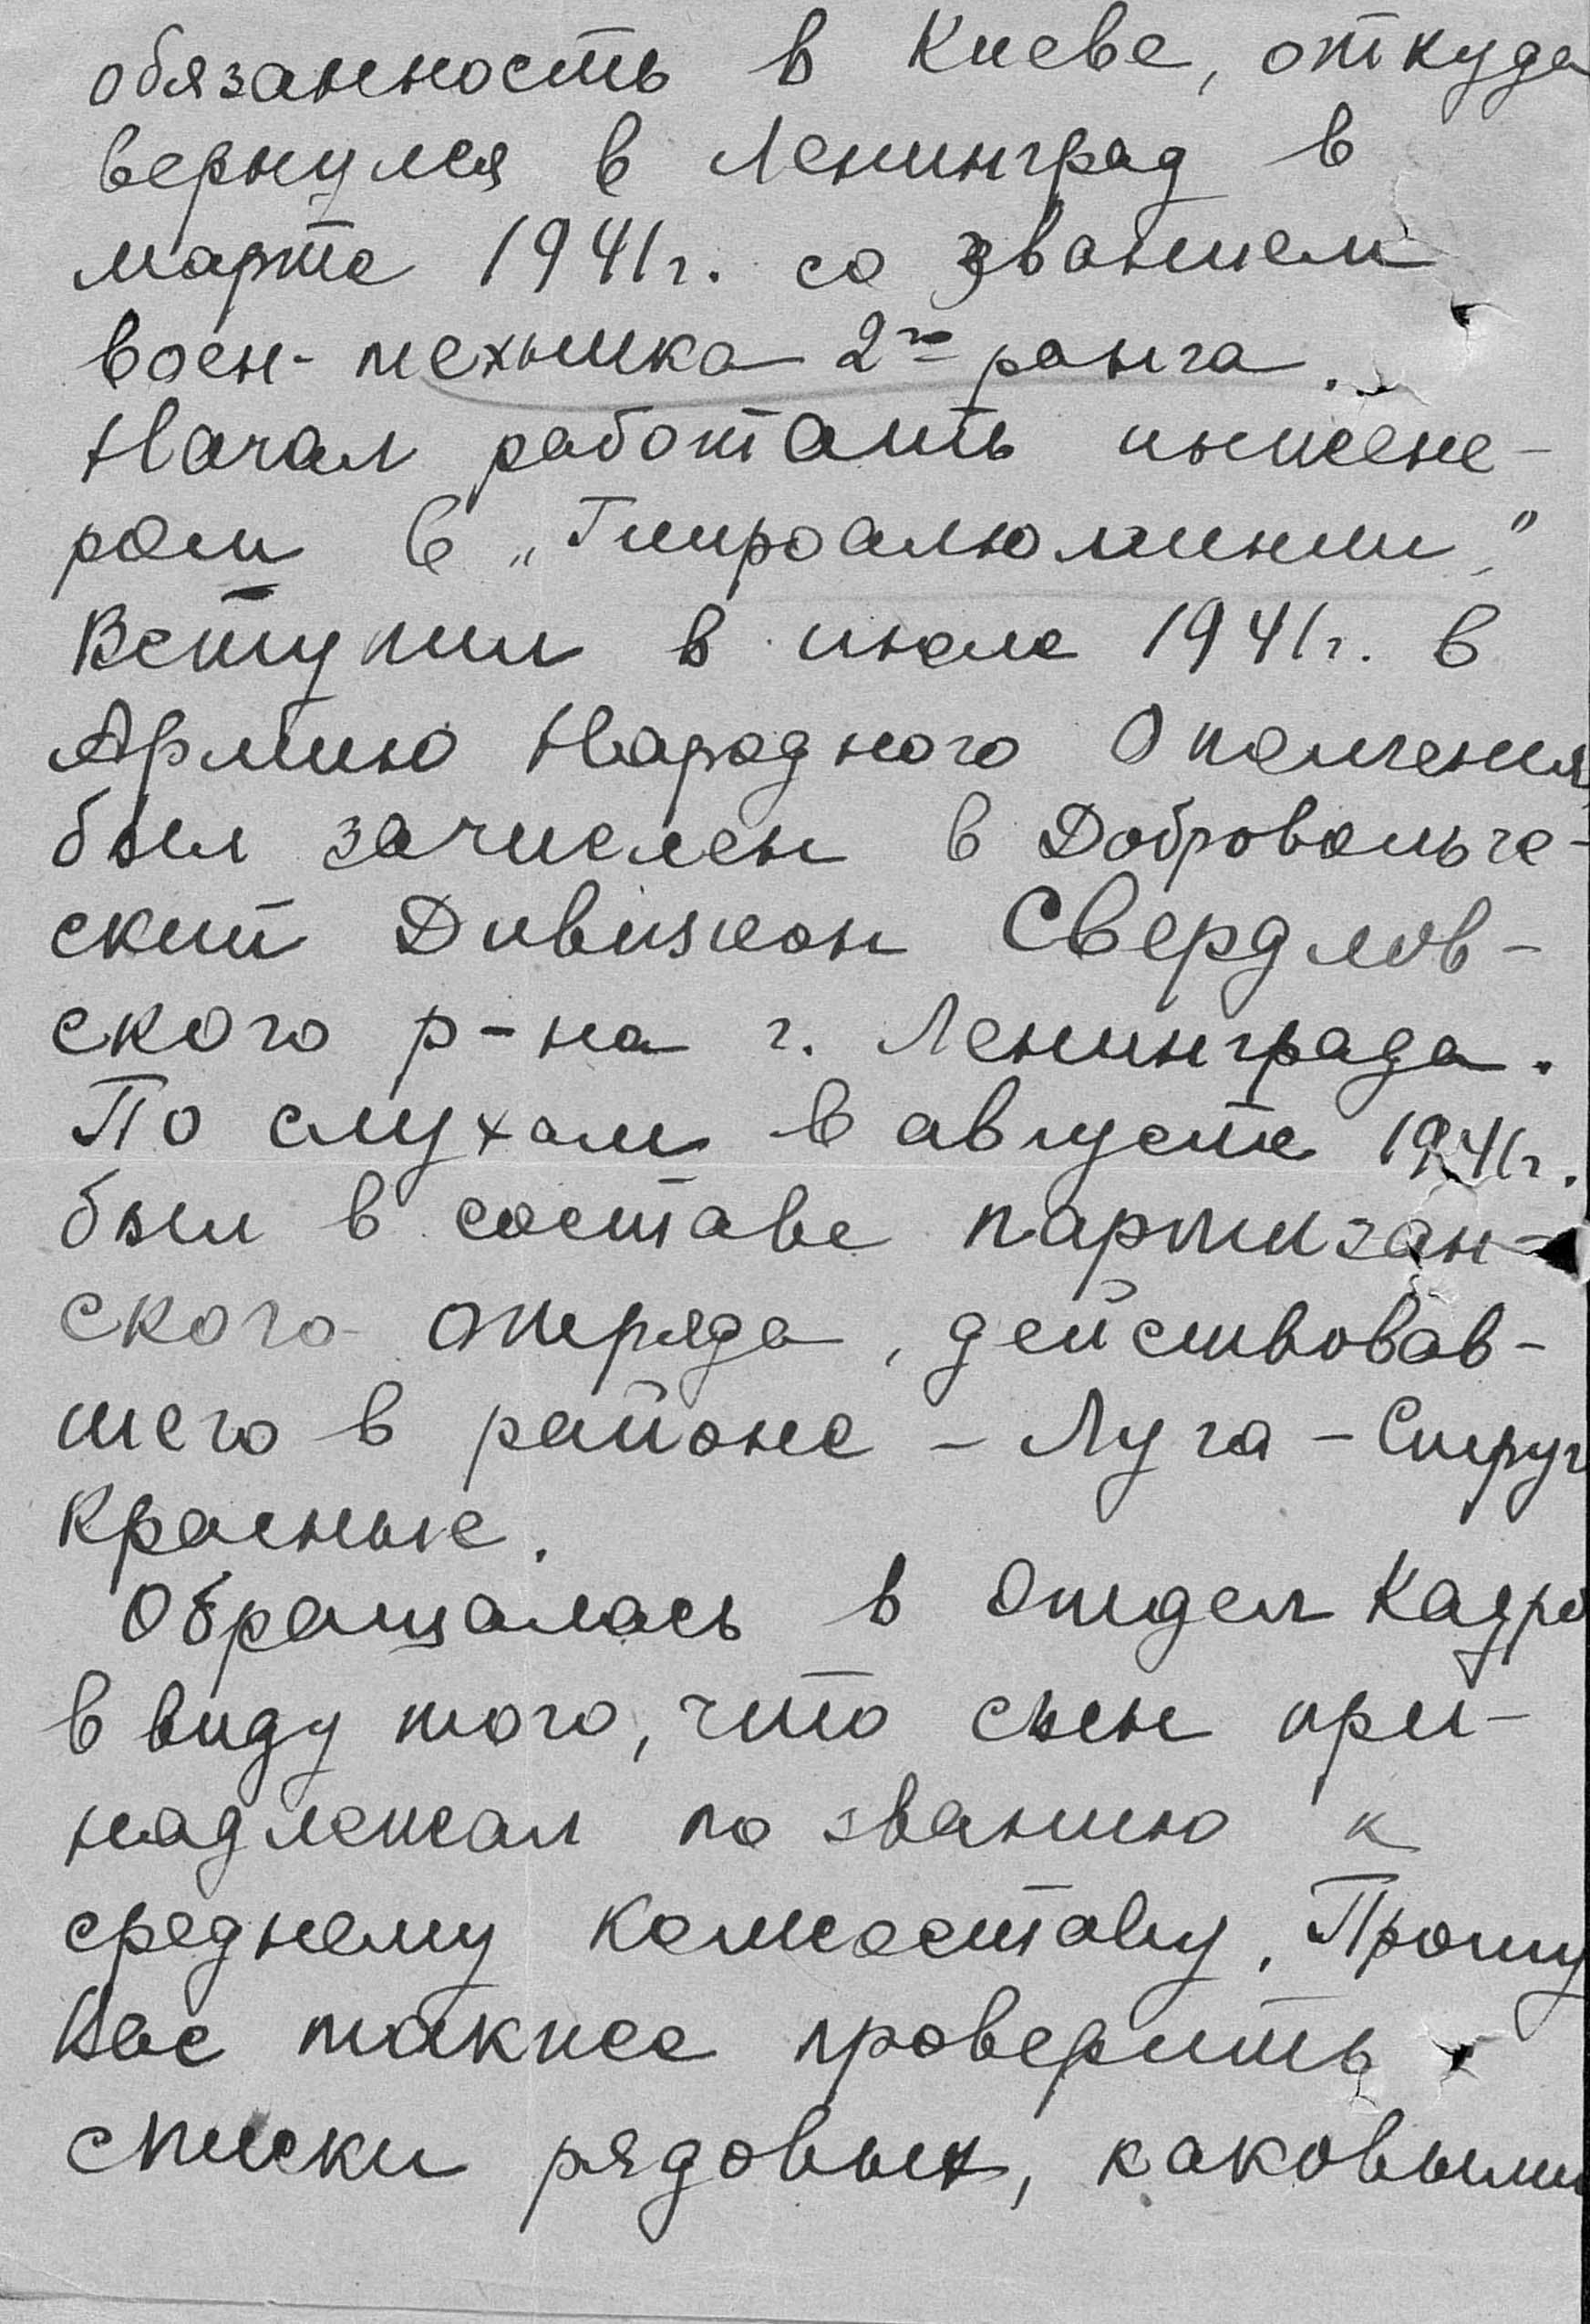 обязанность в Киеве, откуда
вернулся в Ленинград в
марте 1941г. со званием
воен-техника 2го ранга.
Начал работать инжене-
ром в „Гипроалюминии".
Вступил в июле 1941г. в
Армию Народного Ополчения,
был зачислен в Доброволъче-
ский Дивизион Свердлов-
ского р-на г. Ленинграда.
По слухам в августе 1941г.
был в составе партизан-
ского отряда, действовав-
шего в районе - Луга - Струги
Красные.
Обращалась в Отдел Кадро
в виду того, что сын при-
надлежал по званию к
среднему комсоставу. Прошу
Вас также проверить
списки рядовых, каковыми